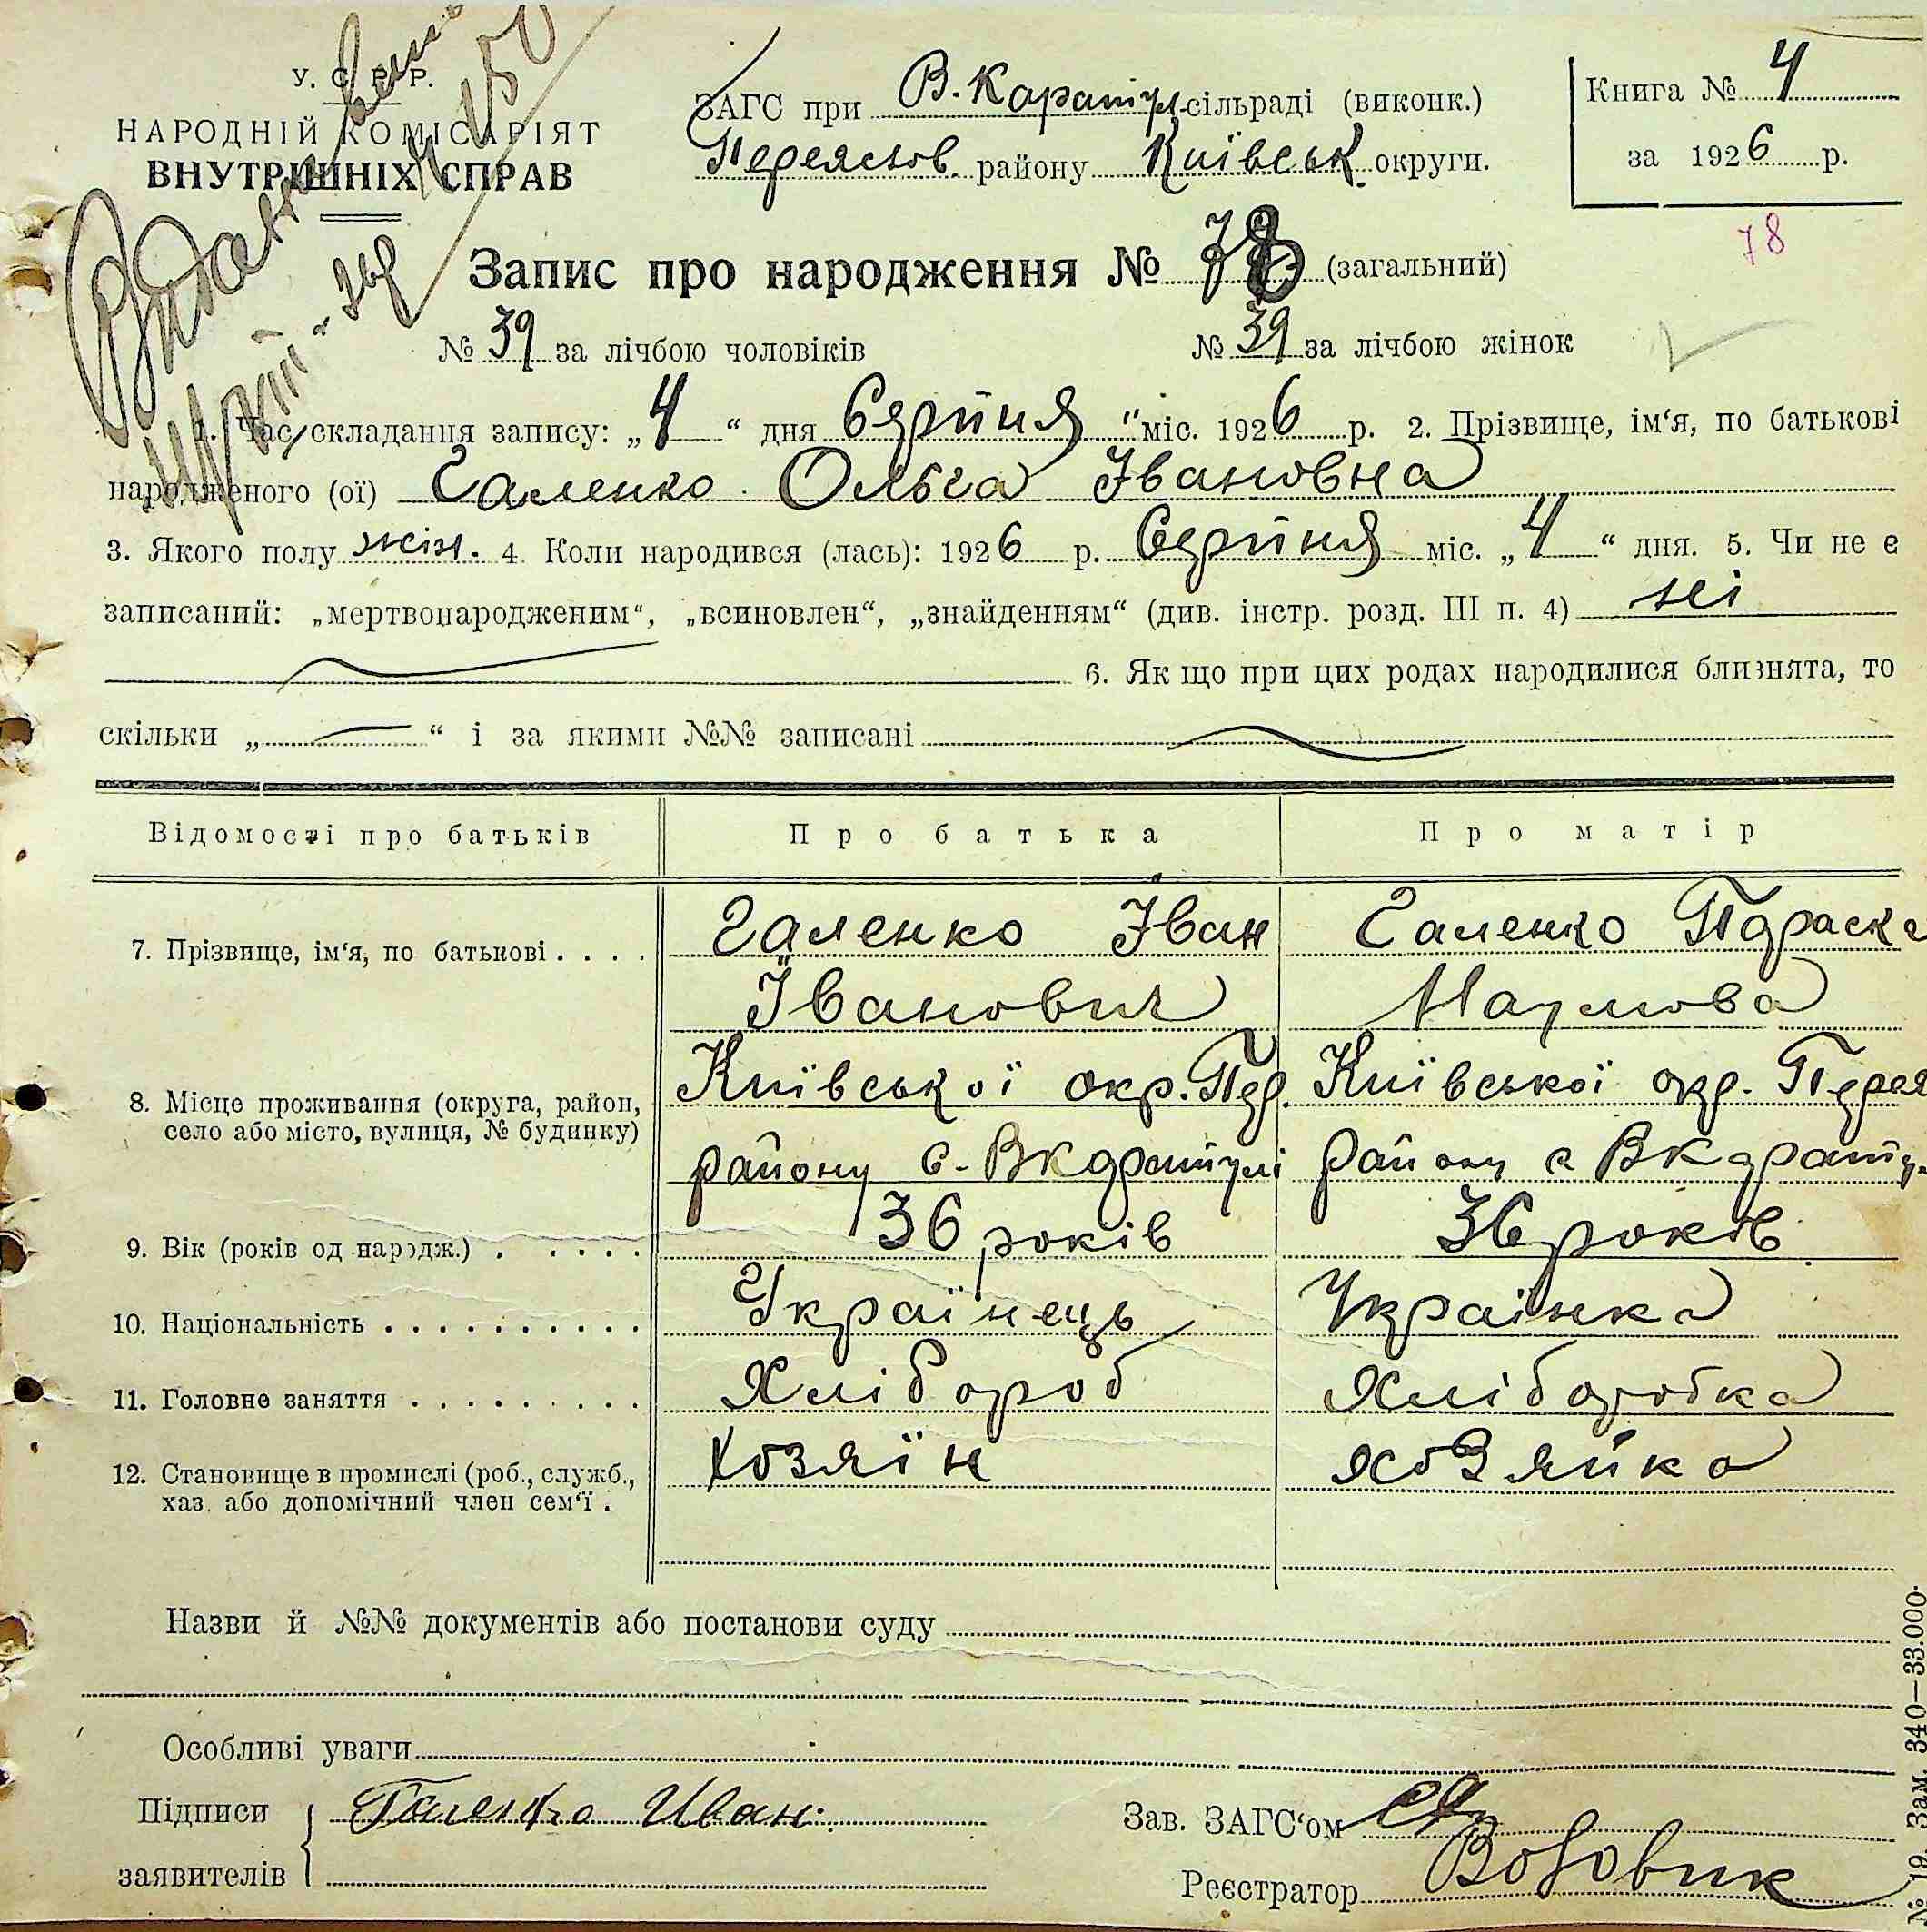 У. С. Р. Р.
НАРОДНІЙ КОМІСАРІЯТ
ВНУТРІШНІХ СПРАВ
ЗАГС при В. Каратул сільраді (виконк.)
Переяслов. району Київськ. округи.
Книга № 4
за 1926 р.
78
Запис про народження № 78 (загальний)
№ 39 за лічбою чоловіків № 39 за лічбою жінок
1. Час складання запису: „4“ дня Серпня міс. 1926 р. 2. Прізвище, ім‘я, по батькові
народженого (ої) Галенко Ольга Івановна
3. Якого полу жін. 4. Коли народився (лась): 1926 р. Серпня міс. „4“ дня. 5. Чи не є
записаний: „мертвонародженим“, „всиновлен“, „знайденням“ (див. інстр. розд. III п. 4) ні
6. Як що при цих родах народилися близнята, то
скільки „—“ і за якими №№ записані
Відомості про батьків Про батька Про матір
7. Прізвище, ім‘я, по батькові . . . . Галенко Іван Галенко Параска
Іванович Наумова
8. Місце проживання (округа, район, село або місто, вулиця, № будинку) Київської окр. Пер. Київської окр. Перея
району с. ВКаратулі району с ВКарату
9. Вік (років од народж.) . . . . . 36 років 36 років
10. Національність . . . . . . . . . . Українець Українка
11. Головне заняття . . . . . . . . . Хлібороб Хліборобка
12. Становище в промислі (роб., служб., хаз. або допомічний член сем‘ї . Хозяїн хозяйка
Назви й №№ документів або постанови суду
Особливі уваги
Підписи заявителів Галенко Иван.
Зав. ЗАГС‘ом
Реєстратор Вововик
№ 19. Зам. 340—33.000.